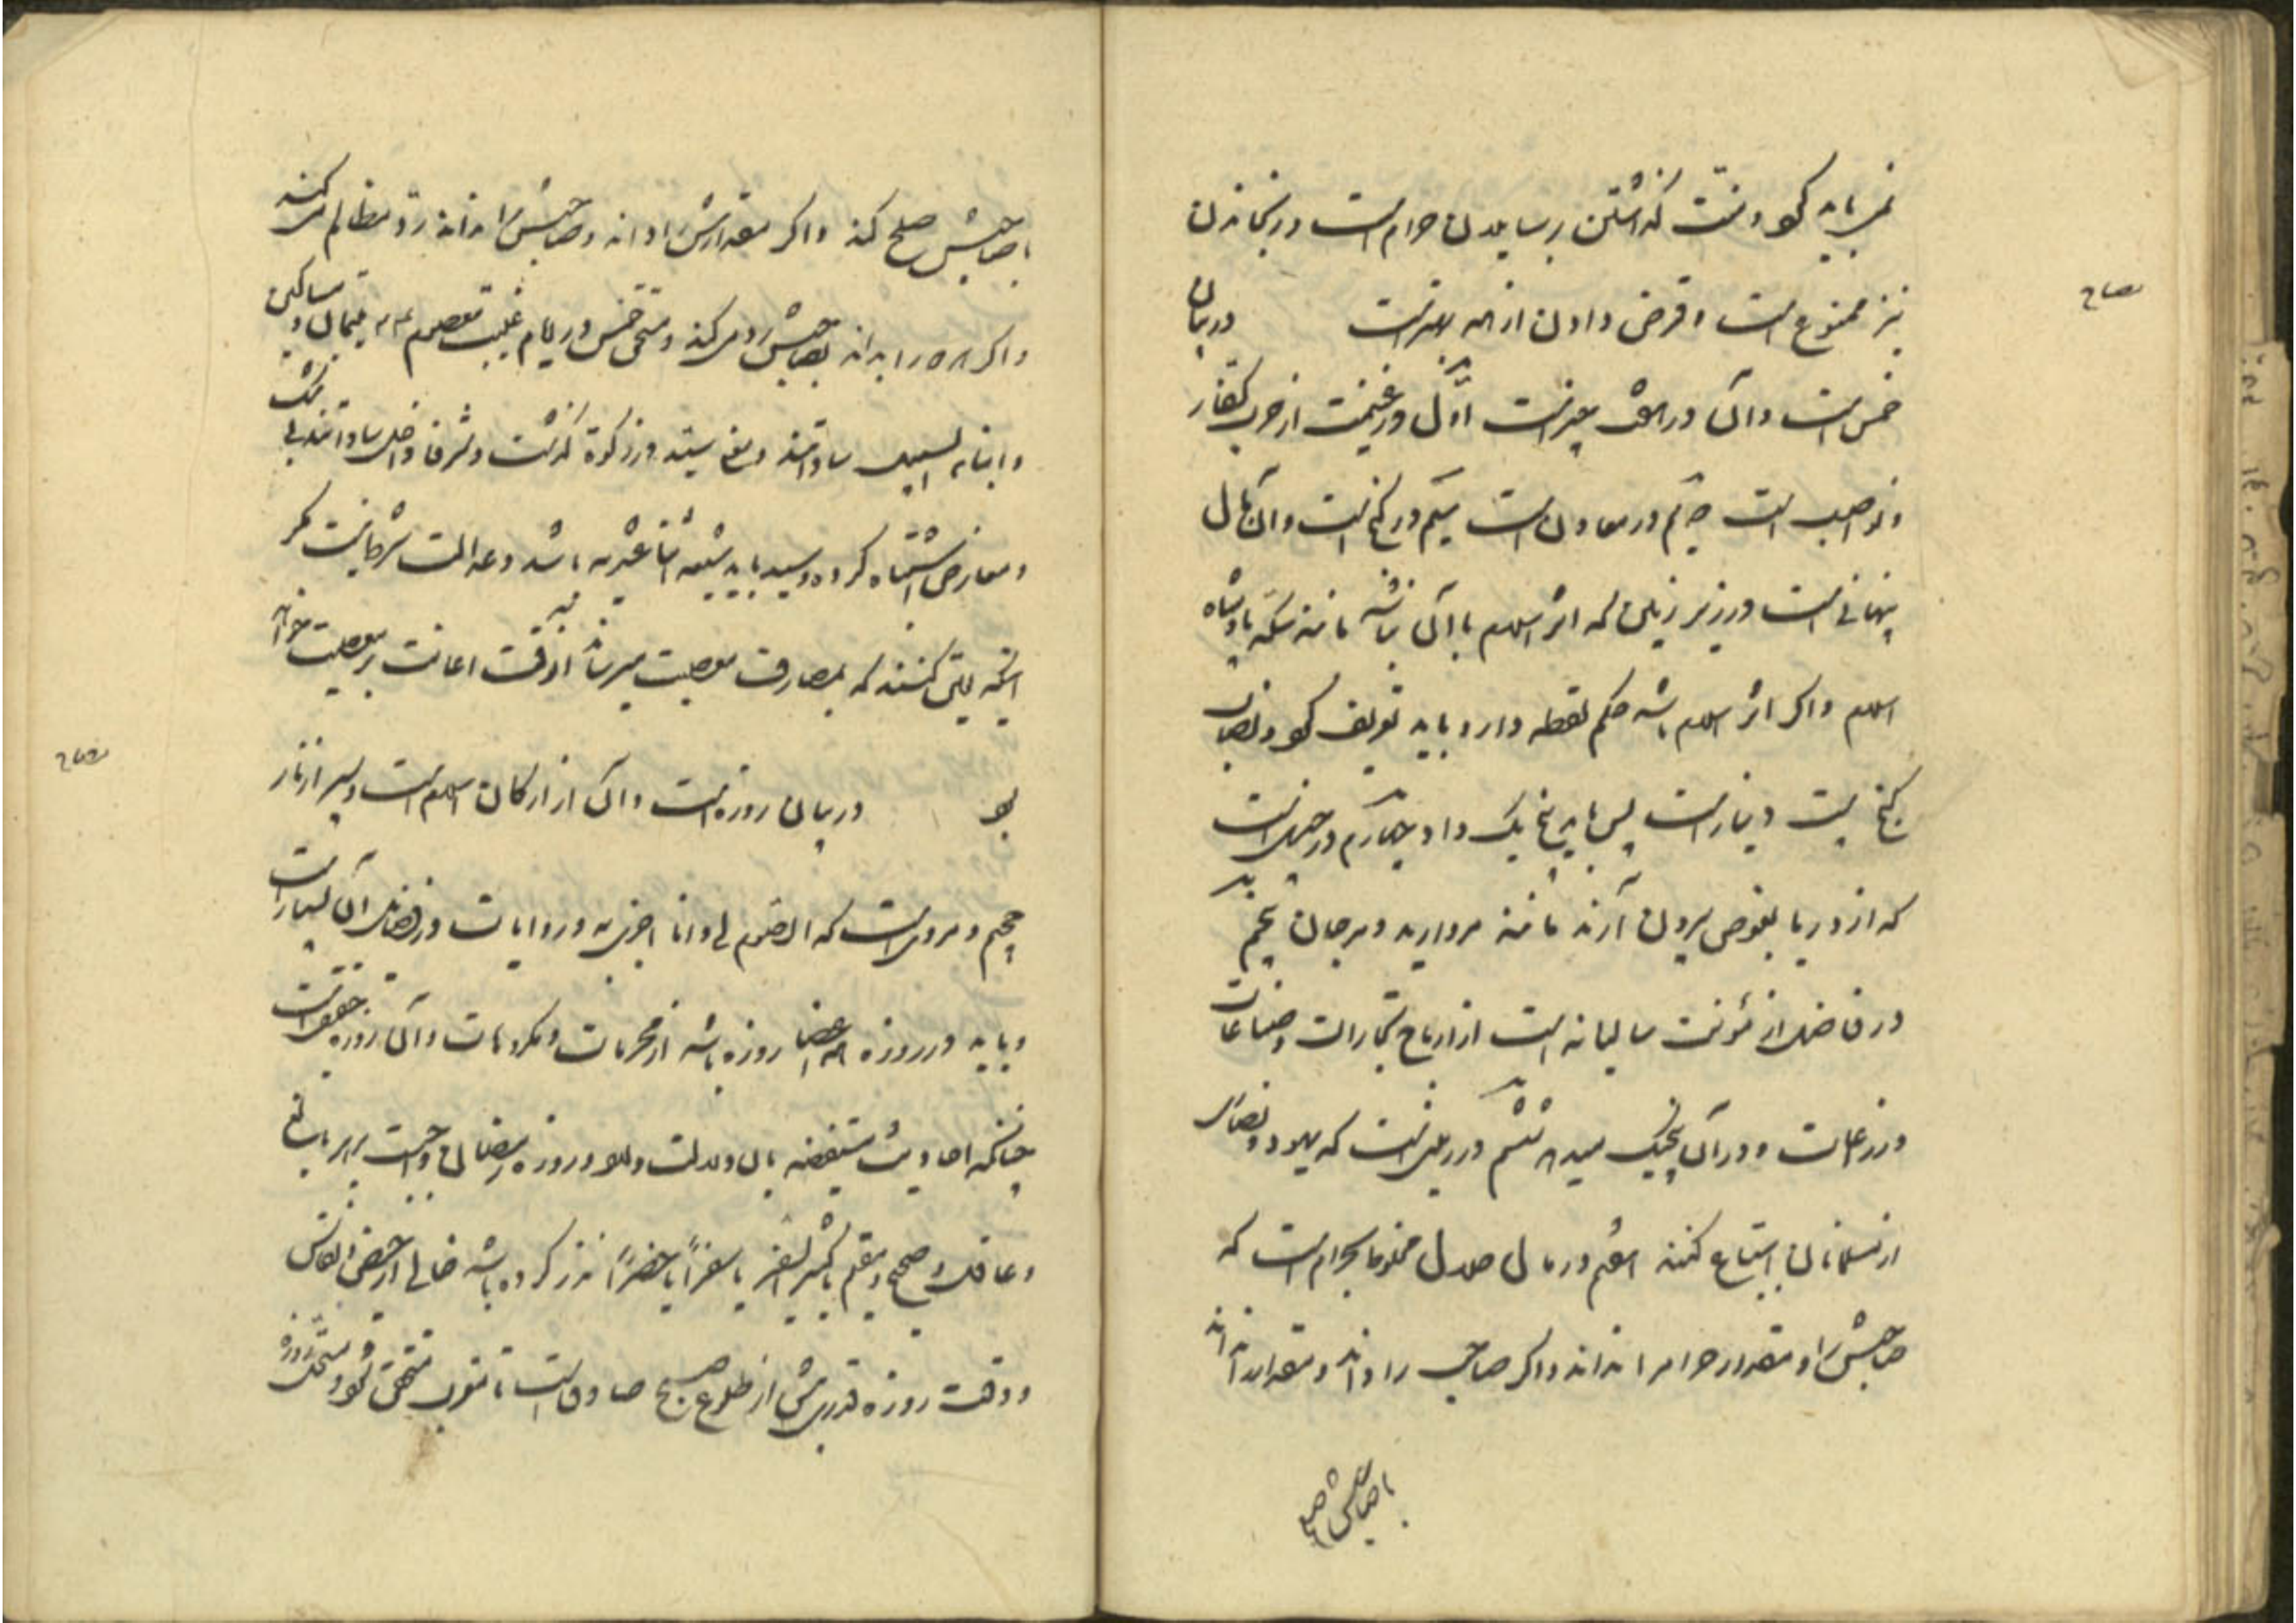 نمی باید کرد و منت گذاشتن بر سایلان حرام است و رنجاندن
نیز ممنوع است و قرض دادن از همه بهتر است در بیان
خمس است و آن در هفت چیز است اوّل در غنیمت از حرب کفار
و نواصب است دویم در معادن است سیم در گنج است و آن مال
پنهانی است در زیر زمین که اثر اسلام با آن نباشد مانند سکه پادشاه
اسلام و اگر اثر اسلام باشد حکم لقطه دارد باید تعریف کرد و نصاب
گنج بیست دینار است پس باید پنج یک داد چهارم در چیزیست
که از دریا بغوص بیرون آرند مانند مروارید و مرجان پنجم
در فاضل از مؤنت سالیانه است از ارباح تجارات و صناعات
و زراعات و در آن پنج یک میدهد ششم در زمین است که یهود و نصاری
از مسلمانان ابتیاع کنند هفتم در مال حلال مخلوط بحرام است که
صاحبش را و مقدار حرام را نداند و اگر صاحب را داند و مقدار نداند
با صاحبش صلح
با صاحبش صلح کند و اگر مقدارش را داند و صاحبش را نداند ردّ مظالم می کند
و اگر هر دو را بداند بصاحبش رد می کند و مستحق خمس در ایام غیبت معصوم ع یتیمان و مساکین
و ابناء السبیل ساداتند و معنی سید در زکوة گذشت و شرفا داخل ساداتند بی شک
و معارض اشتباه کرده و سید باید شیعه اثنا عشریه باشد و عدالت شرط نیست مگر
اینکه یقین کنند که بمصارف معصیت میرساند آنوقت اعانت بر معصیت خواهد
بود در بیان روزه است و آن از ارکان اسلام است و سپر از نار
جحیم و مرویست که الصوم لی و انا اجزی به و روایات در فضل آن بسیار است
و باید در روزه همه اعضا روزه باشد از محرمات و مکروهات و آن روزه حقیقت
چنانکه احادیث مستفیضه بآن دلالت دارد و روزه رمضان واجبست بر هر بالغ
و عاقل و صحیح و مقیم یا کثیر السفر یا سفراً یا حضراً نذر کرده باشد خالی از حیض و نفاس
و وقت روزه قدری پیش از طلوع صبح صادق است تا مغرب متحقق شود و مستحبّ روزه